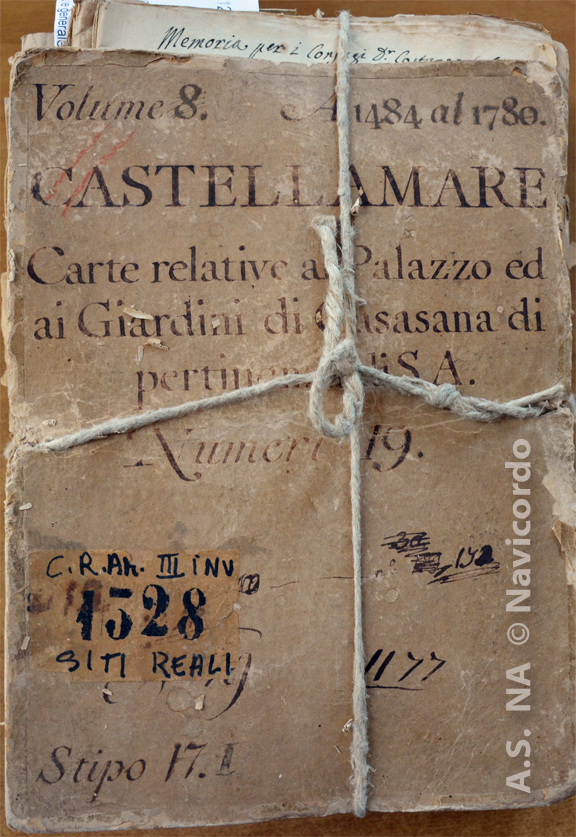 egenerale
12
Memoria per i
Volume 8. A 1484 al 1780.
CASTELLAMARE
Carte relative al Palazzo ed
ai Giardini di Casasana di
pertinenza di S.A.
Numeri 19.
C.R.Am. III INV
152
1528
SITI REALI
1177
Stipo 17.I
A.S. NA © Navicordo